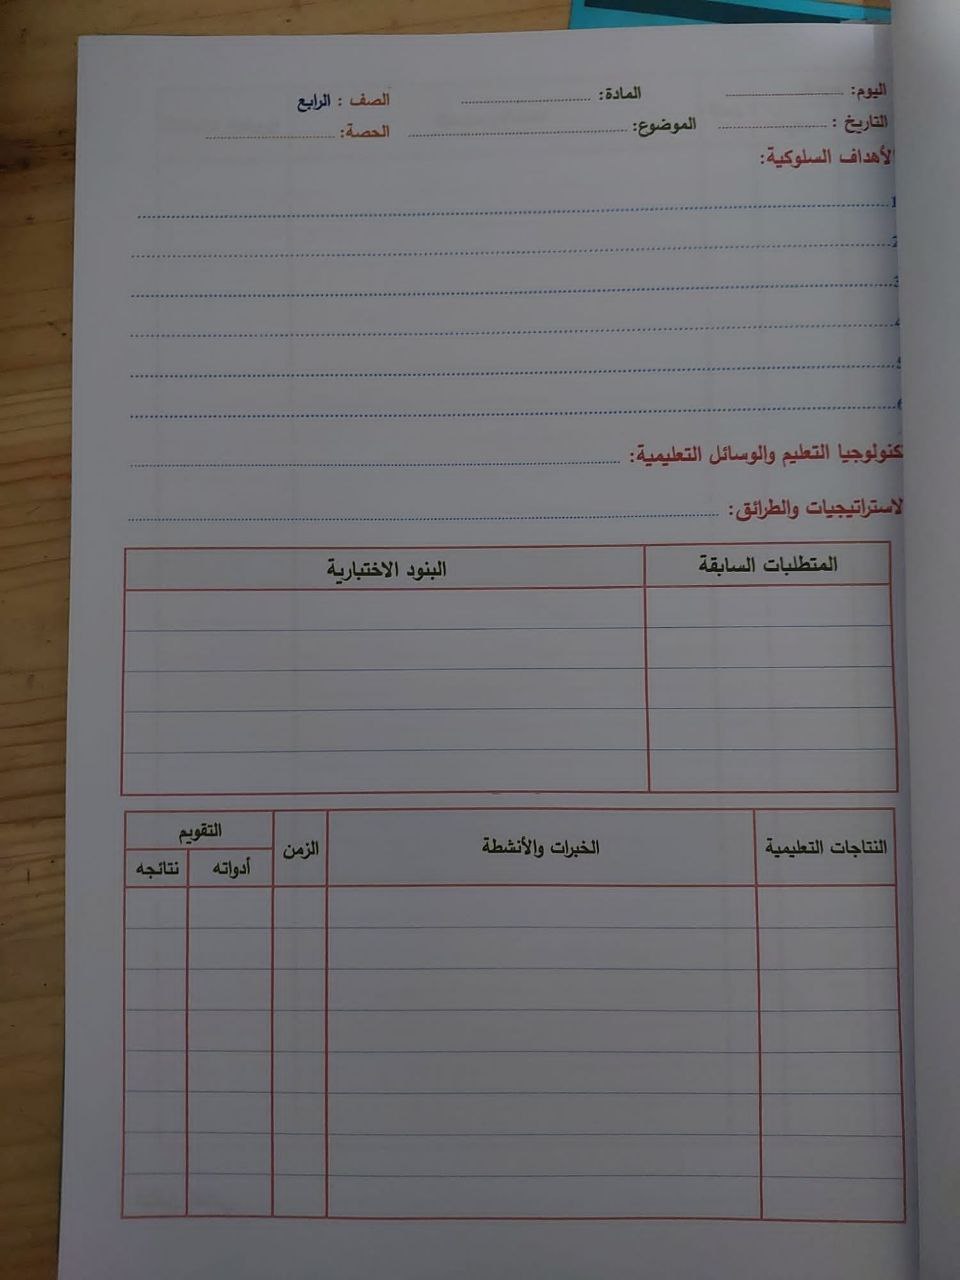 اليوم: ........................ المادة: ........................ الصف : الرابع
التاريخ : ........................ الموضوع: ........................ الحصة: ........................
الأهداف السلوكية:
1
2
3
4
5
6
تكنولوجيا التعليم والوسائل التعليمية: ........................
الاستراتيجيات والطرائق: ........................
المتطلبات السابقة البنود الاختبارية
النتاجات التعليمية الخبرات والأنشطة الزمن التقويم
أدواته نتائجه